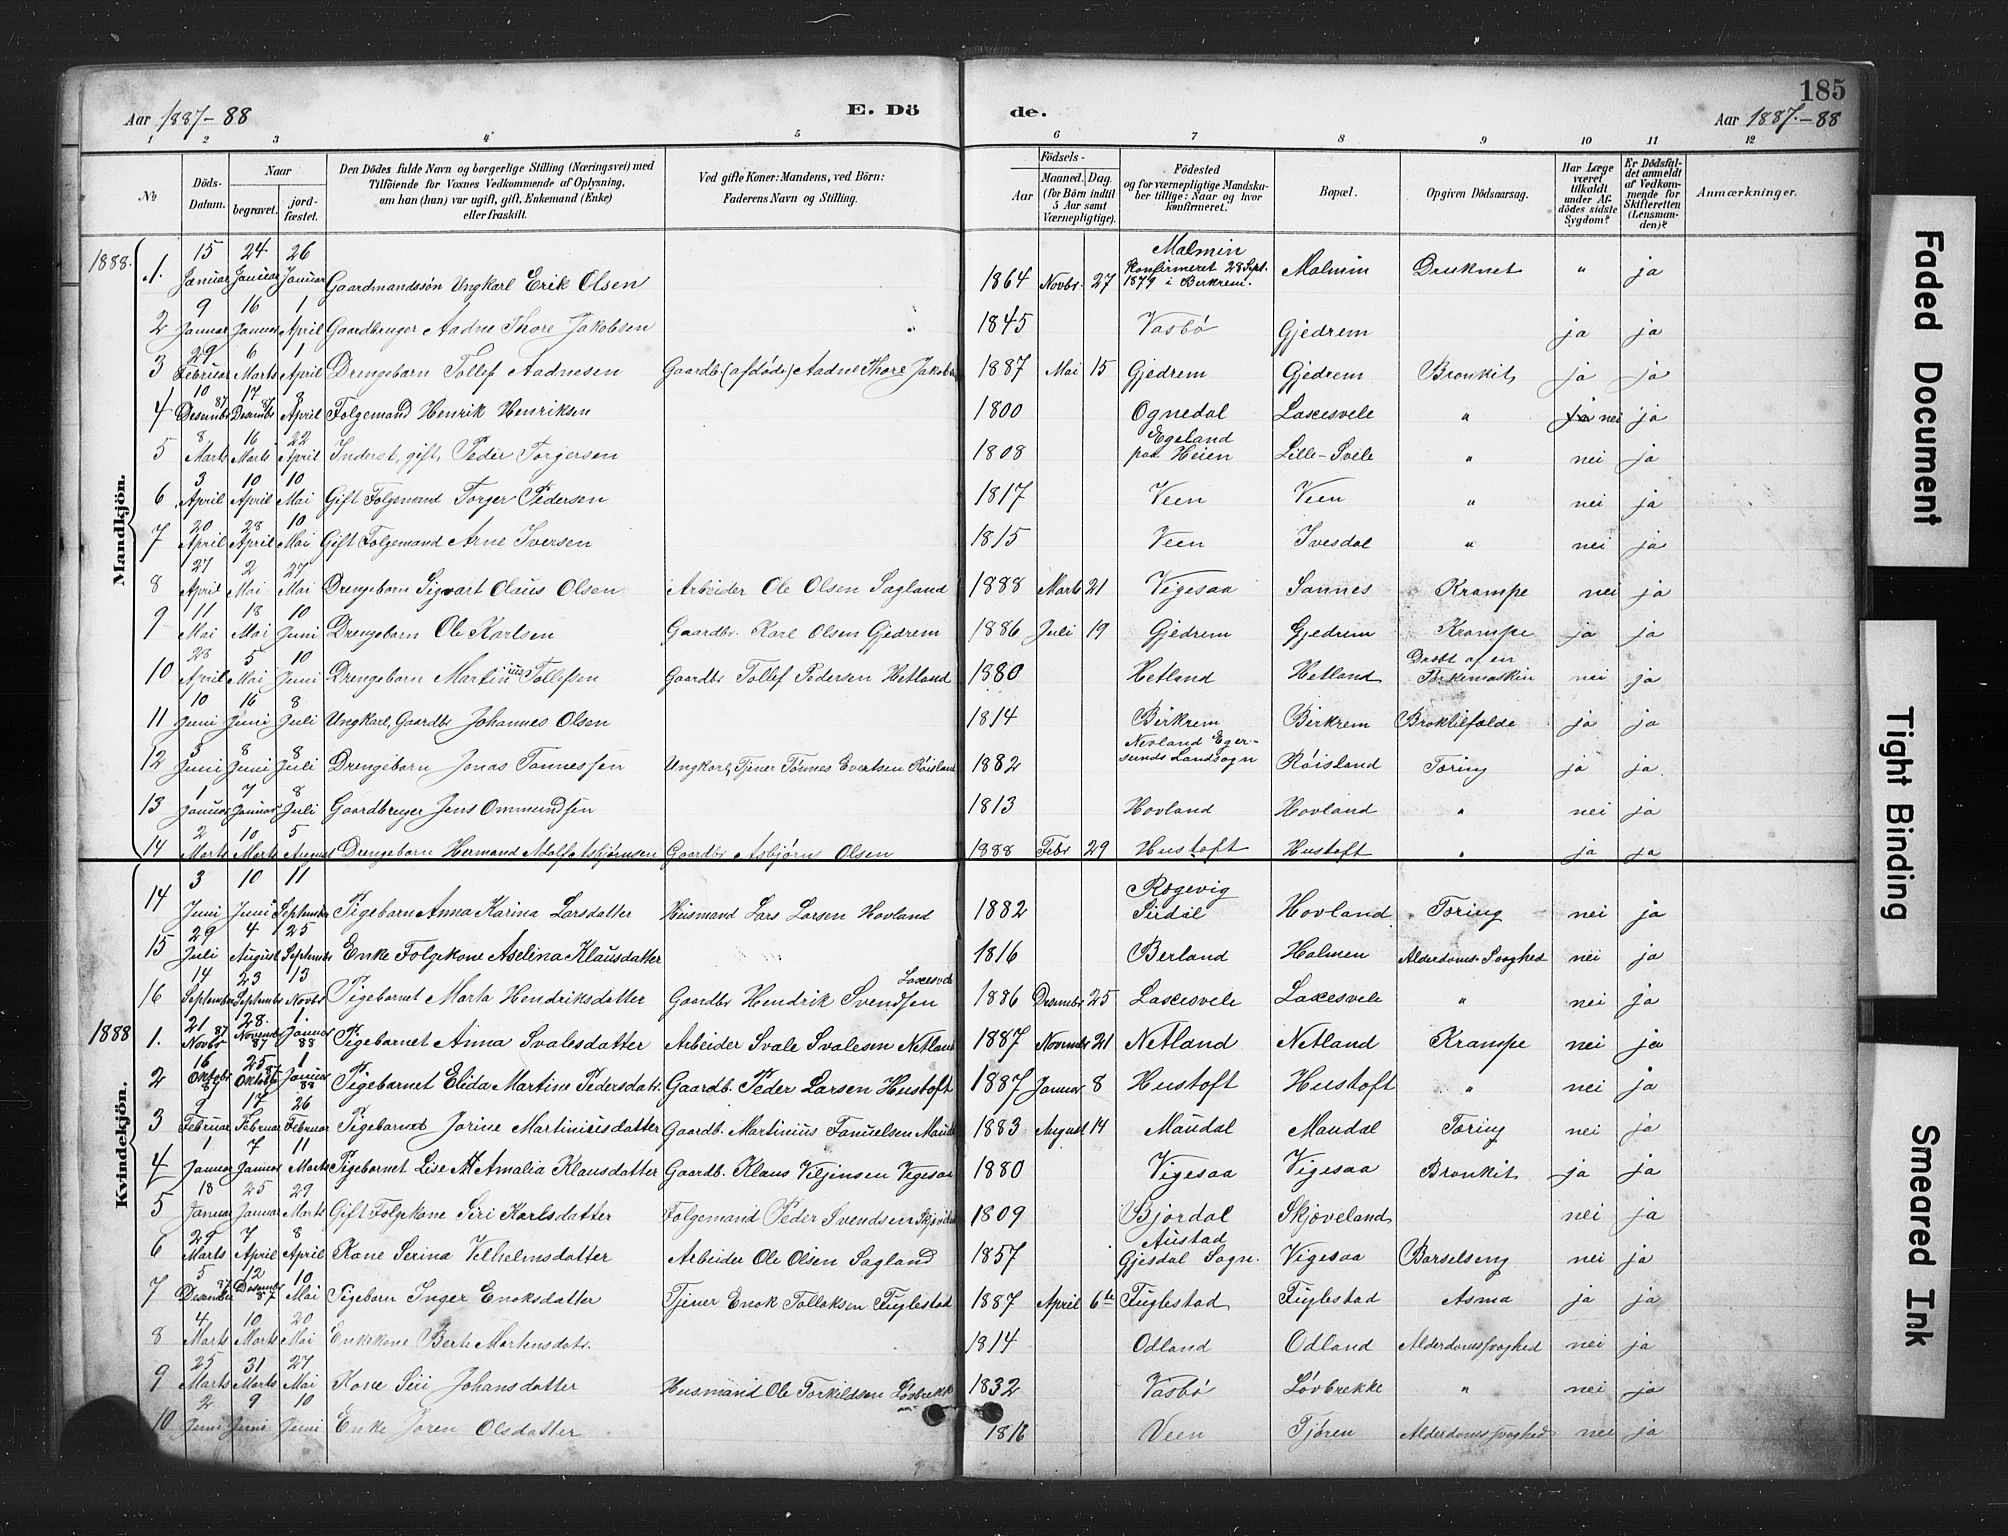 185
Aar 1887-88 E. Dö de. Aar 1887.-88
1 2 3 4 5 6 7 8 9 10 11 12
No. Döds-Datum. Naar begravet. jordfæstet. Den Dödes fulde Navn og borgerlige Stilling (Næringsvei) med Tilföiende for Voxnes Vedkommende af Oplysning, om han (hun) var ugift, gift, Enkemand (Enke) eller fraskilt. Ved gifte Koner: Mandens, ved Börn: Faderens Navn og Stilling. Födsels- Aar Maaned. Dag. (for Börn indtil 5 Aar samt Værnepligtige). Födested og for værnepligtige Mandskaber tillige: Naar og hvor konfirmeret. Bopæl. Opgiven Dödsaarsag. Har Læge været tilkaldt under Afdödes sidste Sygdom? Er Dödsfaldet anmeldt af Vedkommende for Skifteretten (Lensmanden)? Anmærkninger.
Mandkjön.
1888. 1. 15 Januar 24 Januar 26 Januar Gaardmandssön Ungkarl Erik Olsen 1864 Novbr. 27 Malmin Konfirmeret 28 Sept. 1879 i Birkrem. Malmin Druknet " ja
2 9 Januar 16 Januar 1 April Gaardbruger Aadne Thore Jakobsen " 1845 Vasbö Gjedrem ja ja
3 29 Februar 6 Marts 1 April Drengebarn Tollef Aadnesen Gaardb. (afdøde) Aadne Thore Jakobsen 1887 Mai 15 Gjedrem Gjedrem Bronkit ja ja
4 10 Desembr 87 17 Desembr 87 8 April Folgemand Henrik Henriksen 1800 Ognedal Laxesvele " ja nei ja
5 8 Marts 16 Marts 22 April Inderst, gift, Peder Torgersen 1808 Egeland paa Heien Lille-Svele " nei ja
6 3 April 10 April 10 Mai Gift Folgemand Torger Pedersen 1817 Veen Veen " nei ja
7 20 April 28 April 10 Mai Gift Folgemand Arne Iversen 1815 Veen Ivesdal " nei ja
8 27 April 2 Mai 27 Mai Drengebarn Sigvart Olaus Olsen Arbeider Ole Olsen Sagland 1888 Marts 21 Vigesaa Sannes Krampe nei ja
9 11 Mai 18 Mai 10 Juni Drengebarn Ole Karlsen Gaardbr. Karl Olsen Gjedrem 1886 Juli 19 Gjedrem Gjedrem Krampe ja ja
10 28 April 5 Mai 10 Juni Drengebarn Martinius Tollefsen Gaardbr Tollef Pedersen Hetland 1880 Hetland Hetland Dræbt af en nei ja
11 10 Juni 16 Juni 8 Juli Ungkarl, Gaardbr Johannes Olsen 1814 Birkrem Birkrem Broktilfælde ja ja
12 3 Juni 8 Juni 8 Juli Drengebarn Jonas Tønnessen Ungkarl, Tjener Tønnes Evertsen Røisland 1882 Nevland Egersunds Landsogn Røisland Tæring ja ja
13 1 Januar 7 Januar 8 Juli Gaardbruger Jens Ommundsen 1813 Hovland Hovland " nei ja
14 2 Marts 10 Marts 5 August Drengebarn Hermand Adolf Asbjørnsen Gaardbr Asbjørn Olsen 1888 Febr 29 Hustoft Hustoft " ja ja
Kvindekjön.
14 3 Juni 10 Juni 11 September Pigebarn Anna Karina Larsdatter Husmand Lars Larsen Hovland 1882 Rægevig Sirdal Hovland Tæring nei ja
15 29 Juli 4 August 25 September Enke Folgekone Aselina Klausdatter 1816 Berland Holmen Alderdoms Svaghed nei ja
16 14 September 23 September 13 Novbr Pigebarnet Marta Hendriksdatter Gaardbr Hendrik Svendsen Laxesvele 1886 Desember 25 Laxesvele Laxesvele " nei ja
1888 1. 21 Novbr 87 28. November 87 1. Januar 88 Pigebarnet Anna Svalesdatter Arbeider Svale Svalesen Netland 1887 November 21 Netland Netland Krampe nei ja
2 16 Oktobr 87 25 Oktobr 87 1 Januar 88 Pigebarnet Elida Martine Pedersdatr. Gaardb. Peder Larsen Hustoft 1887 Januar 8 Hustoft Hustoft " nei ja
3 Februar 17 Februar 26 Februar Pigebarnet Jorine Martiniusdatter Gaardb. Martinius Tanuelsen Maudal 1883 August 14 Maudal Maudal Tæring nei ja
4 1 Januar 7 Januar 11 Marts Pigebarnet Lise M Amalia Klausdatter Gaardb. Klaus Viljensen Vigesaa 1880 Vigesaa Vigesaa Bronkit ja ja
5 18 Januar 25 Januar 29 Marts Gift Folgekone Siri Karlsdatter Folgemand Peder Svendsen 1809 Bjordal Skjæveland nei ja
6 29 Marts 7 April 8 April Kone Serina Velhelmsdatter Arbeider Ole Olsen Sagland 1857 Austad Gjesdal Sogn. Vigesaa Barselseng nei ja
7 5 Desember 87 12 Desember 87 10 Mai Pigebarn Inger Enoksdatter Tjener Enok Tollaksen Fuglestad 1887 April 6te Fuglestad Fuglestad Asma ja ja
8 4 Marts 10 Marts 20 Mai Enkekone Berte Mortensdatr. 1814 Odland Odland Alderdomssvaghed nei ja
9 25 Marts 31 Marts 27 Mai Kone Siri Johansdatter Husmand Ole Torkildsen Løvbrekke 1832 Vasbö Løvbrekke " nei ja
10 2 Juni 9 Juni 10 Juni Enke Joren Olsdatter 1816 Veen Tjøren Alderdomssvaghed nei ja
Faded Document
Tight Binding
Smeared Ink